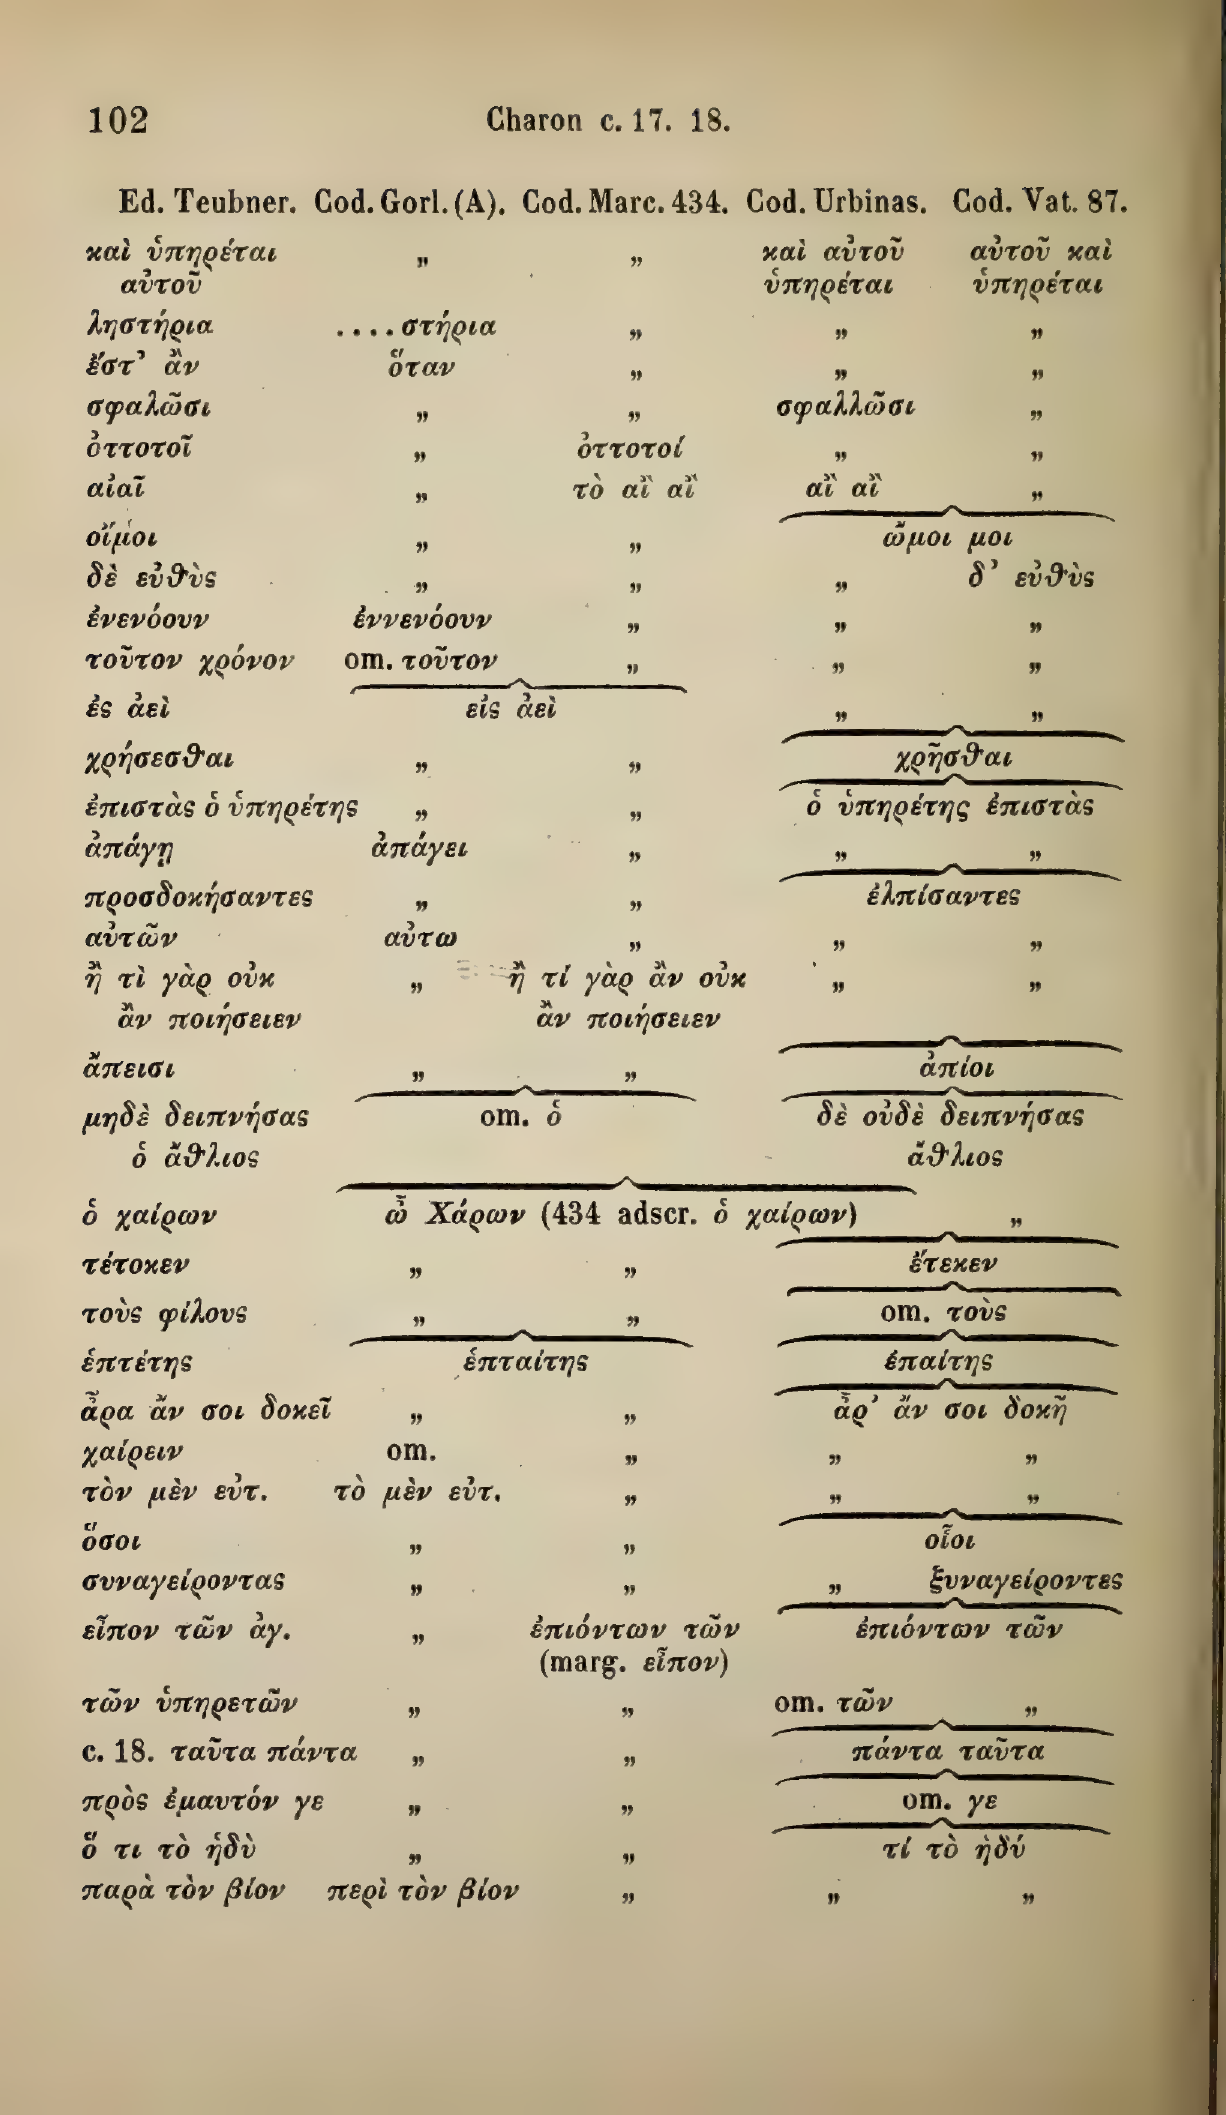 102 Charon c. 17. 18.
Ed. Teubner. Cod. Gorl. (A). Cod. Marc. 434. Cod. Urbinas. Cod. Vat. 87.
καὶ ὑπηρέται „ „ καὶ αὐτοῦ αὐτοῦ καὶ
αὐτοῦ ὑπηρέται ὑπηρέται
ληστήρια ....στήρια „ „ „
ἔστ᾽ ἂν ὅταν „ „ „
σφαλῶσι „ „ σφαλλῶσι „
ὀττοτοῖ „ ὀττοτοί „ „
αἰαῖ „ τὸ αἲ αἲ αἲ αἲ „
οἴμοι „ „ ὤμοι μοι
δὲ εὐθὺς „ „ „ δ᾽ εὐθὺς
ἐνενόουν ἐννενόουν „ „ „
τοῦτον χρόνον om. τοῦτον „ „ „
ἐς ἀεὶ εἰς ἀεὶ „ „
χρήσεσθαι „ „ χρῆσθαι
ἐπιστὰς ὁ ὑπηρέτης „ „ ὁ ὑπηρέτης ἐπιστὰς
ἀπάγῃ ἀπάγει „ „ „
προσδοκήσαντες „ „ ἐλπίσαντες
αὐτῶν αὐτω „ „ „
ἢ τὶ γὰρ οὐκ „ ἢ τί γὰρ ἂν οὐκ „ „
ἂν ποιήσειεν ἂν ποιήσειεν
ἄπεισι „ „ ἀπίοι
μηδὲ δειπνήσας om. ὁ δὲ οὐδὲ δειπνήσας
ὁ ἄθλιος ἄθλιος
ὁ χαίρων ὦ Χάρων (434 adscr. ὁ χαίρων) „
τέτοκεν „ „ ἔτεκεν
τοὺς φίλους „ „ om. τοὺς
ἑπτέτης ἑπταίτης ἐπαίτης
ἆρα ἄν σοι δοκεῖ „ „ ἆρ᾽ ἄν σοι δοκῆ
χαίρειν om. „ „ „
τὸν μὲν εὐτ. τὸ μὲν εὐτ. „ „ „
ὅσοι „ „ οἷοι
συναγείροντας „ „ „ ξυναγείροντες
εἶπον τῶν ἀγ. „ ἐπιόντων τῶν ἐπιόντων τῶν
(marg. εἶπον)
τῶν ὑπηρετῶν „ „ om. τῶν „
c. 18. ταῦτα πάντα „ „ πάντα ταῦτα
πρὸς ἐμαυτόν γε „ „ om. γε
ὅ τι τὸ ἡδὺ „ „ τί τὸ ἡδύ
παρὰ τὸν βίον περὶ τὸν βίον „ „ „